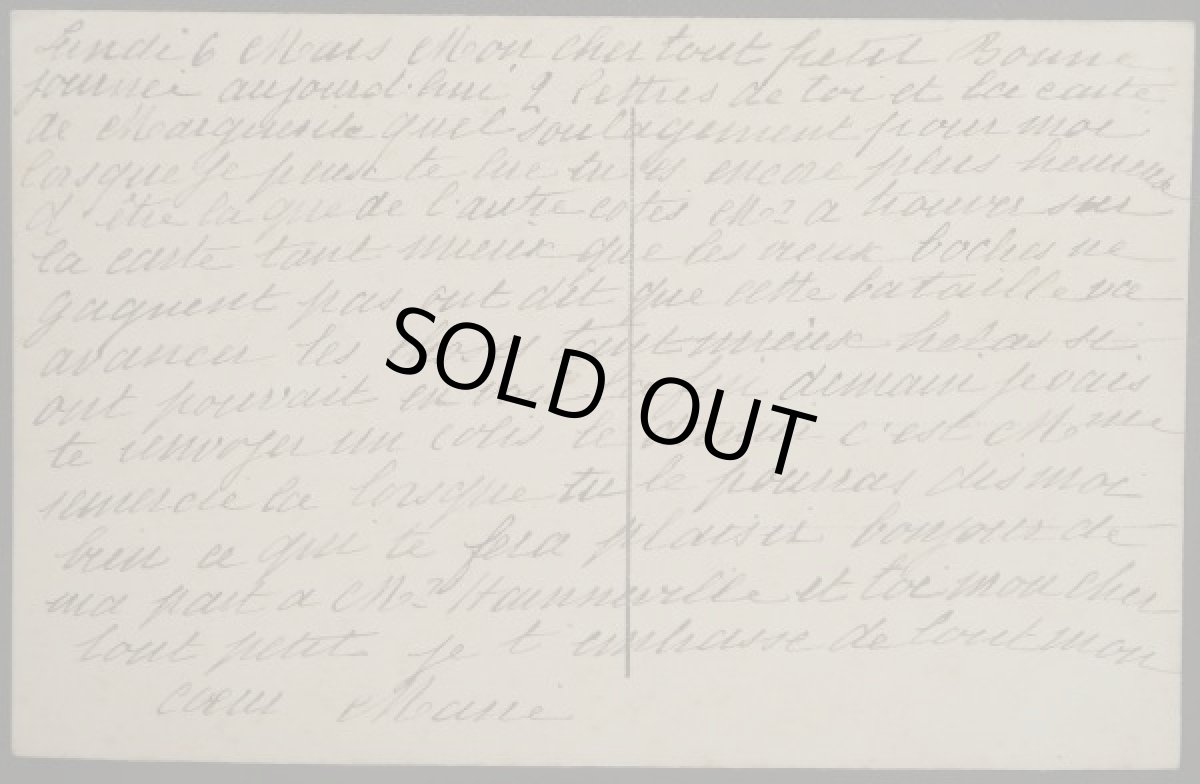 Lundi 6 Mars Mon cher tout petit Bonne
journée aujourd'hui 2 lettres de toi et la carte
de Marguerite quel soulagement pour moi
lorsque je peux te lire tu es encore plus heureux
d'être la que de l'autre cotés Mr a trouver sur
la carte tant mieux que les vieux boches ne
gagnent pas ont dit que cette bataille va
avancer les tant mieux helas si
ont pouvait en demain pouis
te renvoyer un colis c'est Mme
remercie la lorsque tu le pourras dis moi
bien ce qui te fera plaisir bonjour de
ma part a Mr et toi mon cher
tout petit je t embrasse de tout mon
coeur Marie
SOLD OUT